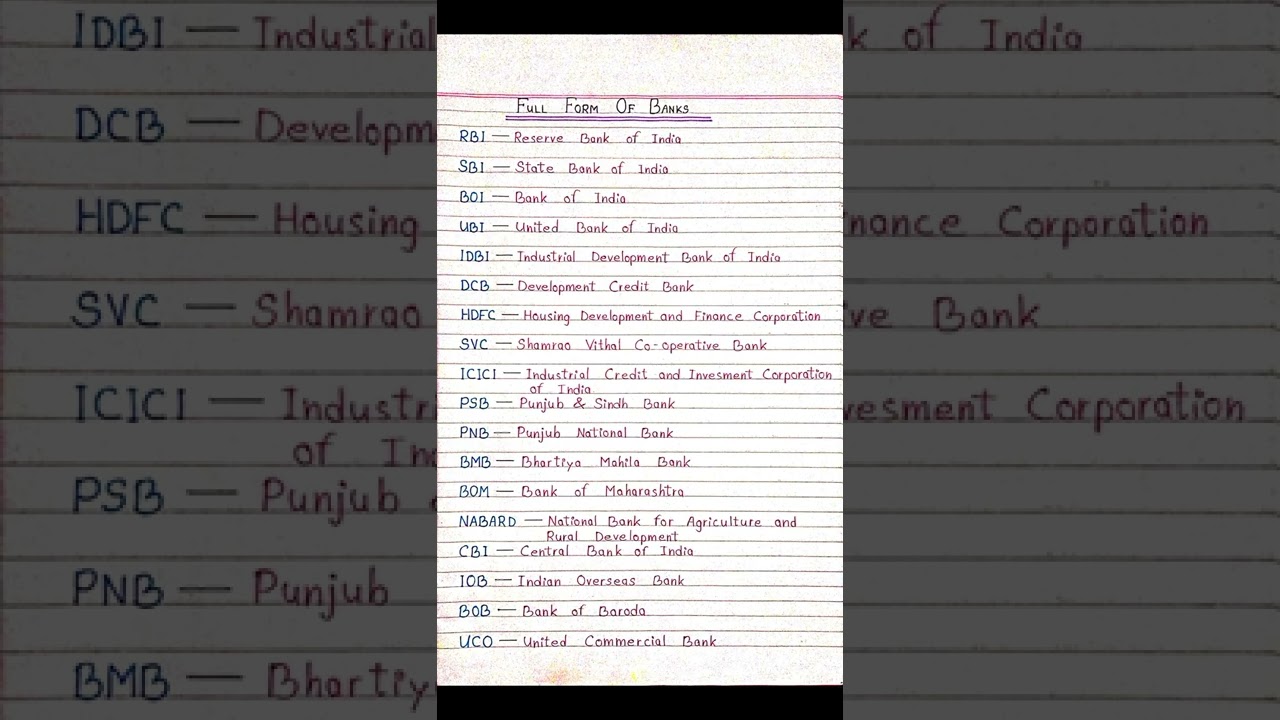 FULL FORM OF BANKS
RBI — Reserve Bank of India
SBI — State Bank of India
BOI — Bank of India
UBI — United Bank of India
IDBI — Industrial Development Bank of India
DCB — Development Credit Bank
HDFC — Housing Development and Finance Corporation
SVC — Shamrao Vithal Co-operative Bank
ICICI — Industrial Credit and Invesment Corporation
of India
PSB — Punjub & Sindh Bank
PNB — Punjub National Bank
BMB — Bhartiya Mahila Bank
BOM — Bank of Maharashtra
NABARD — National Bank for Agriculture and
Rural Development
CBI — Central Bank of India
IOB — Indian Overseas Bank
BOB — Bank of Baroda
UCO — United Commercial Bank